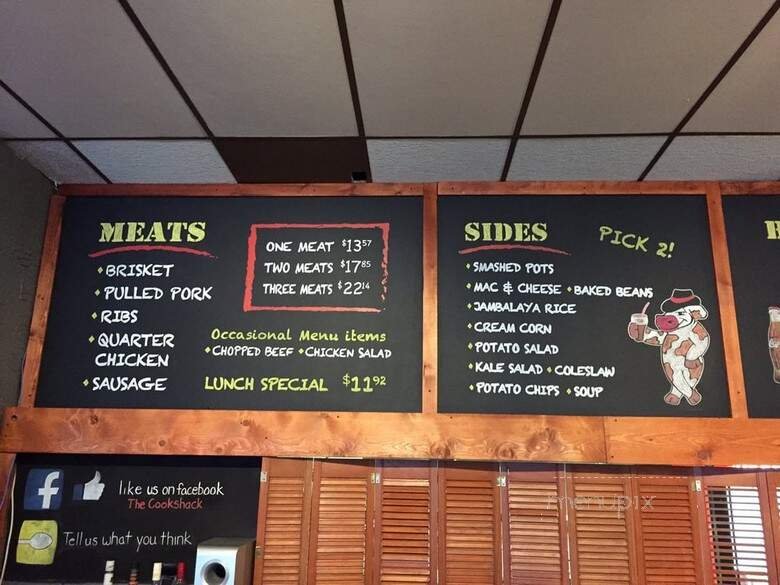 MEATS
• BRISKET
• PULLED PORK
• RIBS
• QUARTER
CHICKEN
• SAUSAGE
ONE MEAT $13.57
TWO MEATS $17.85
THREE MEATS $22.14
Occasional Menu items
• CHOPPED BEEF • CHICKEN SALAD
LUNCH SPECIAL $11.92
SIDES
PICK 2!
• SMASHED POTS
• MAC & CHEESE • BAKED BEANS
• JAMBALAYA RICE
• CREAM CORN
• POTATO SALAD
• KALE SALAD • COLESLAW
• POTATO CHIPS • SOUP
f
like us on facebook
The Cookshack
Tell us what you think
menupix